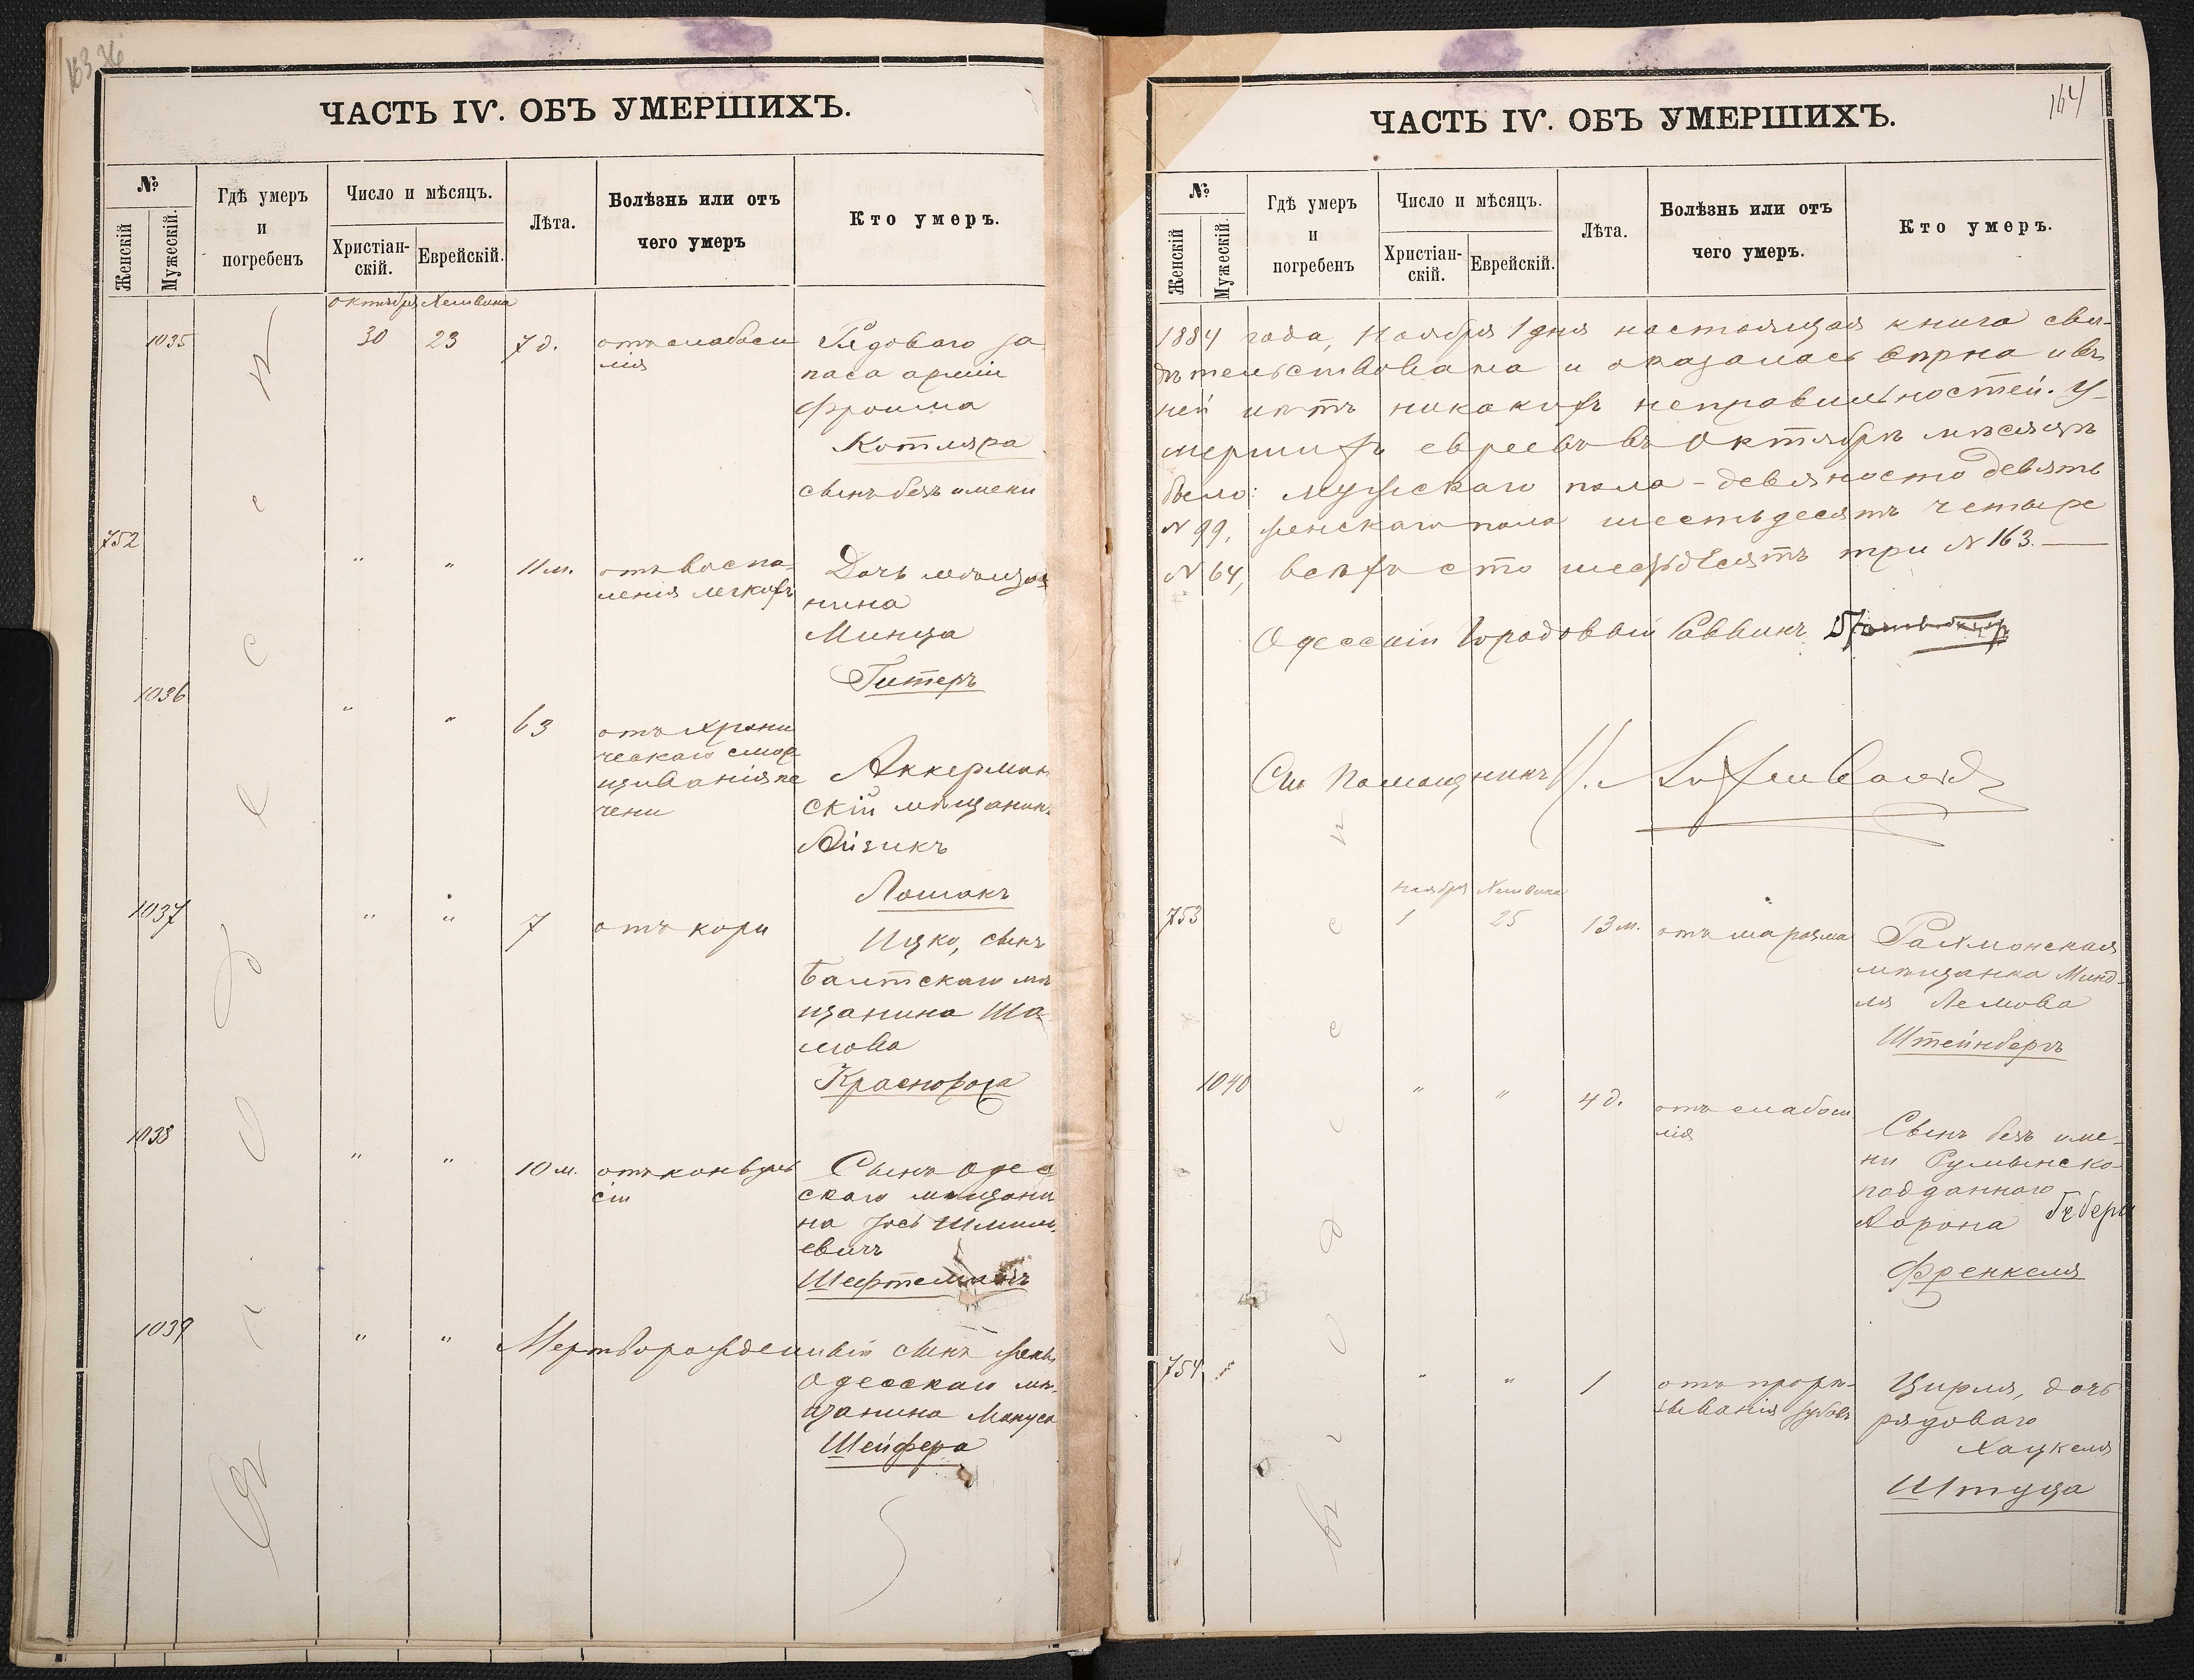 163 36
ЧАСТЬ IV. ОБЪ УМЕРШИХЪ.
№
Женскій
Мужескій.
Гдѣ умеръ
и
погребенъ
Число и мѣсяцъ.
Христіан-
скій.
Еврейскій.
Лѣта.
Болѣзнь или отъ
чего умеръ
Кто умеръ.
въ г. Одессѣ
октября Хешвана
1035
30
23
7 д.
отъ слабоси
лія
Рядового за
паса арміи
Фроима
Котляра
сынъ безъ имени
752
"
"
11 м.
отъ воспа-
ленія легкихъ
Дочь мѣща
нина
Минца
Гитеръ
1036
"
"
63
отъ хрони
ческаго смор
щиванія пе
чени
Аккерман
скій мѣщанинъ
Айзикъ
Лошакъ
1037
"
"
7
отъ кори
Ицко, сынъ
Балтскаго мѣ
щанина
Красновоза
1038
"
"
10 м.
отъ конвуль
сіи
Сынъ Одес
скаго мѣщани
на Іось Шмиль
евичъ
Шефтельманъ
1039
"
"
Мертворожденный сынъ
Одесскаго мѣ-
щанина Мануса
Шейфера
ЧАСТЬ IV. ОБЪ УМЕРШИХЪ.
164
№
Женскій
Мужескій.
Гдѣ умеръ
и
погребенъ
Число и мѣсяцъ.
Христіан-
скій.
Еврейскій.
Лѣта.
Болѣзнь или отъ
чего умеръ.
Кто умеръ.
1884 года, Ноября 1 дня настоящая книга сви-
дѣтельствована и оказалась вѣрна и въ
ней нѣтъ никакихъ неправильностей. У-
мершихъ евреевъ въ Октябрѣ мѣсяцѣ
было: мужскаго пола - девяносто девять
№ 99, женскаго пола шестьдесятъ четыре
№ 64, всѣхъ сто шестьдесятъ три № 163.
Одесскій Городовый Раввинъ
Его Помощникъ
въ г. Одессѣ
ноября Хешвана
753
1
25
13 м.
отъ маразма
мѣщанка Минд-
ля Лемова
Штейнбергъ
1040
"
"
4 д.
отъ слабоси
лія
Сынъ безъ име-
ни Румынско-
подданного
Аарона
Френкеля
754
"
"
1
отъ прорѣ-
зыванія зубовъ
Цирля, дочь
рядоваго
Хацкеля
Штуца